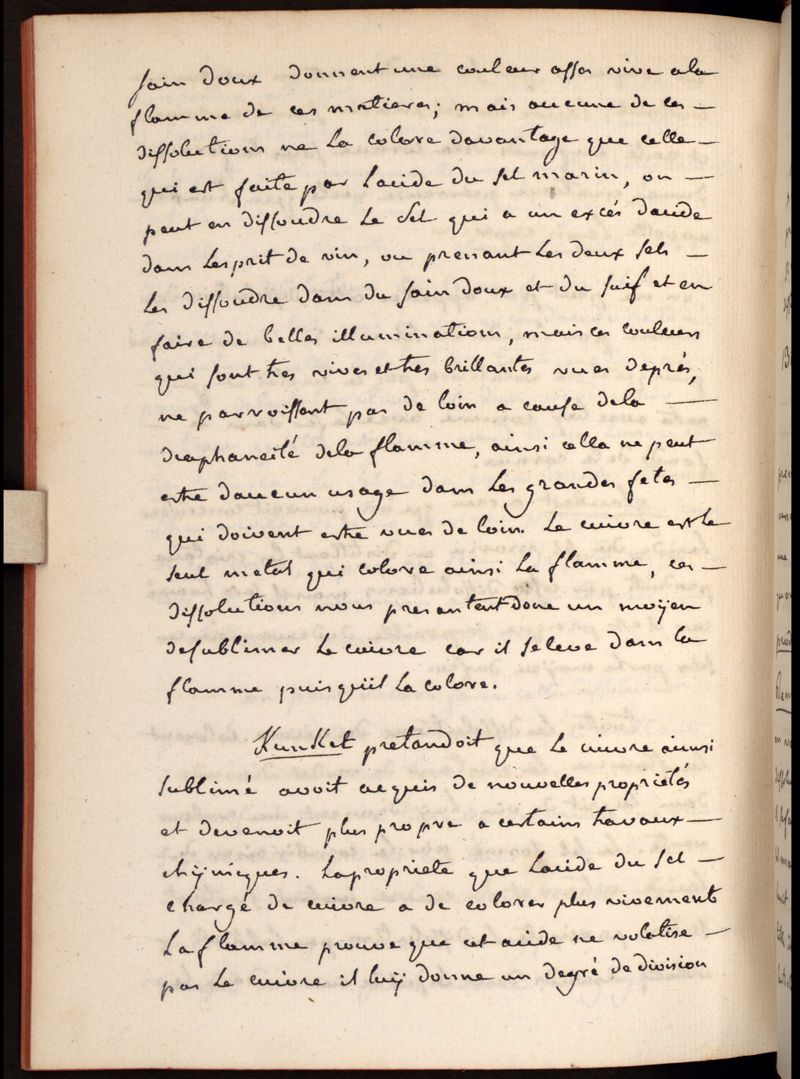 sain doux donnent une couleur assés vive a la
flamme de ces matieres; mais aucune de ces —
dissolutions ne la colore davantage que celle —
qui est faite par Lacide du Sel marin, on —
peut en dissoudre Le Sel qui a un excés dacide
dans Lesprit de vin, ou prenant Les deux sels —
Les dissoudre dans du sain doux et du suif et en
faire de belles illuminations, mais ces couleurs
qui sont tres vives et tres brillantes vues de prés,
ne parroissent pas de loin a cause dela —
diaphaneité dela flamme, ainsi cella ne peut
estre daucun usage dans Les grandes fetes —
qui doivent estre vues de loin. Le cuivre est le
seul metal qui colore ainsi La flamme, ces —
dissolutions nous presentent donc un moÿen
desublimer Le cuivre car il seleve dans la
flamme puis quïl La colore.
Kunkel pretendoit que Le cuivre ainsi
sublimé avoit acquis de nouvelles proprietés
et devenoit plus propre a certains travaux —
chÿmiques. Lapropriete que Lacide du Sel —
chargé de cuivre a de colorer plus vivement
La flamme prouve que cet acide ne volatise —
pas Le cuivre il luÿ donne un degré de division